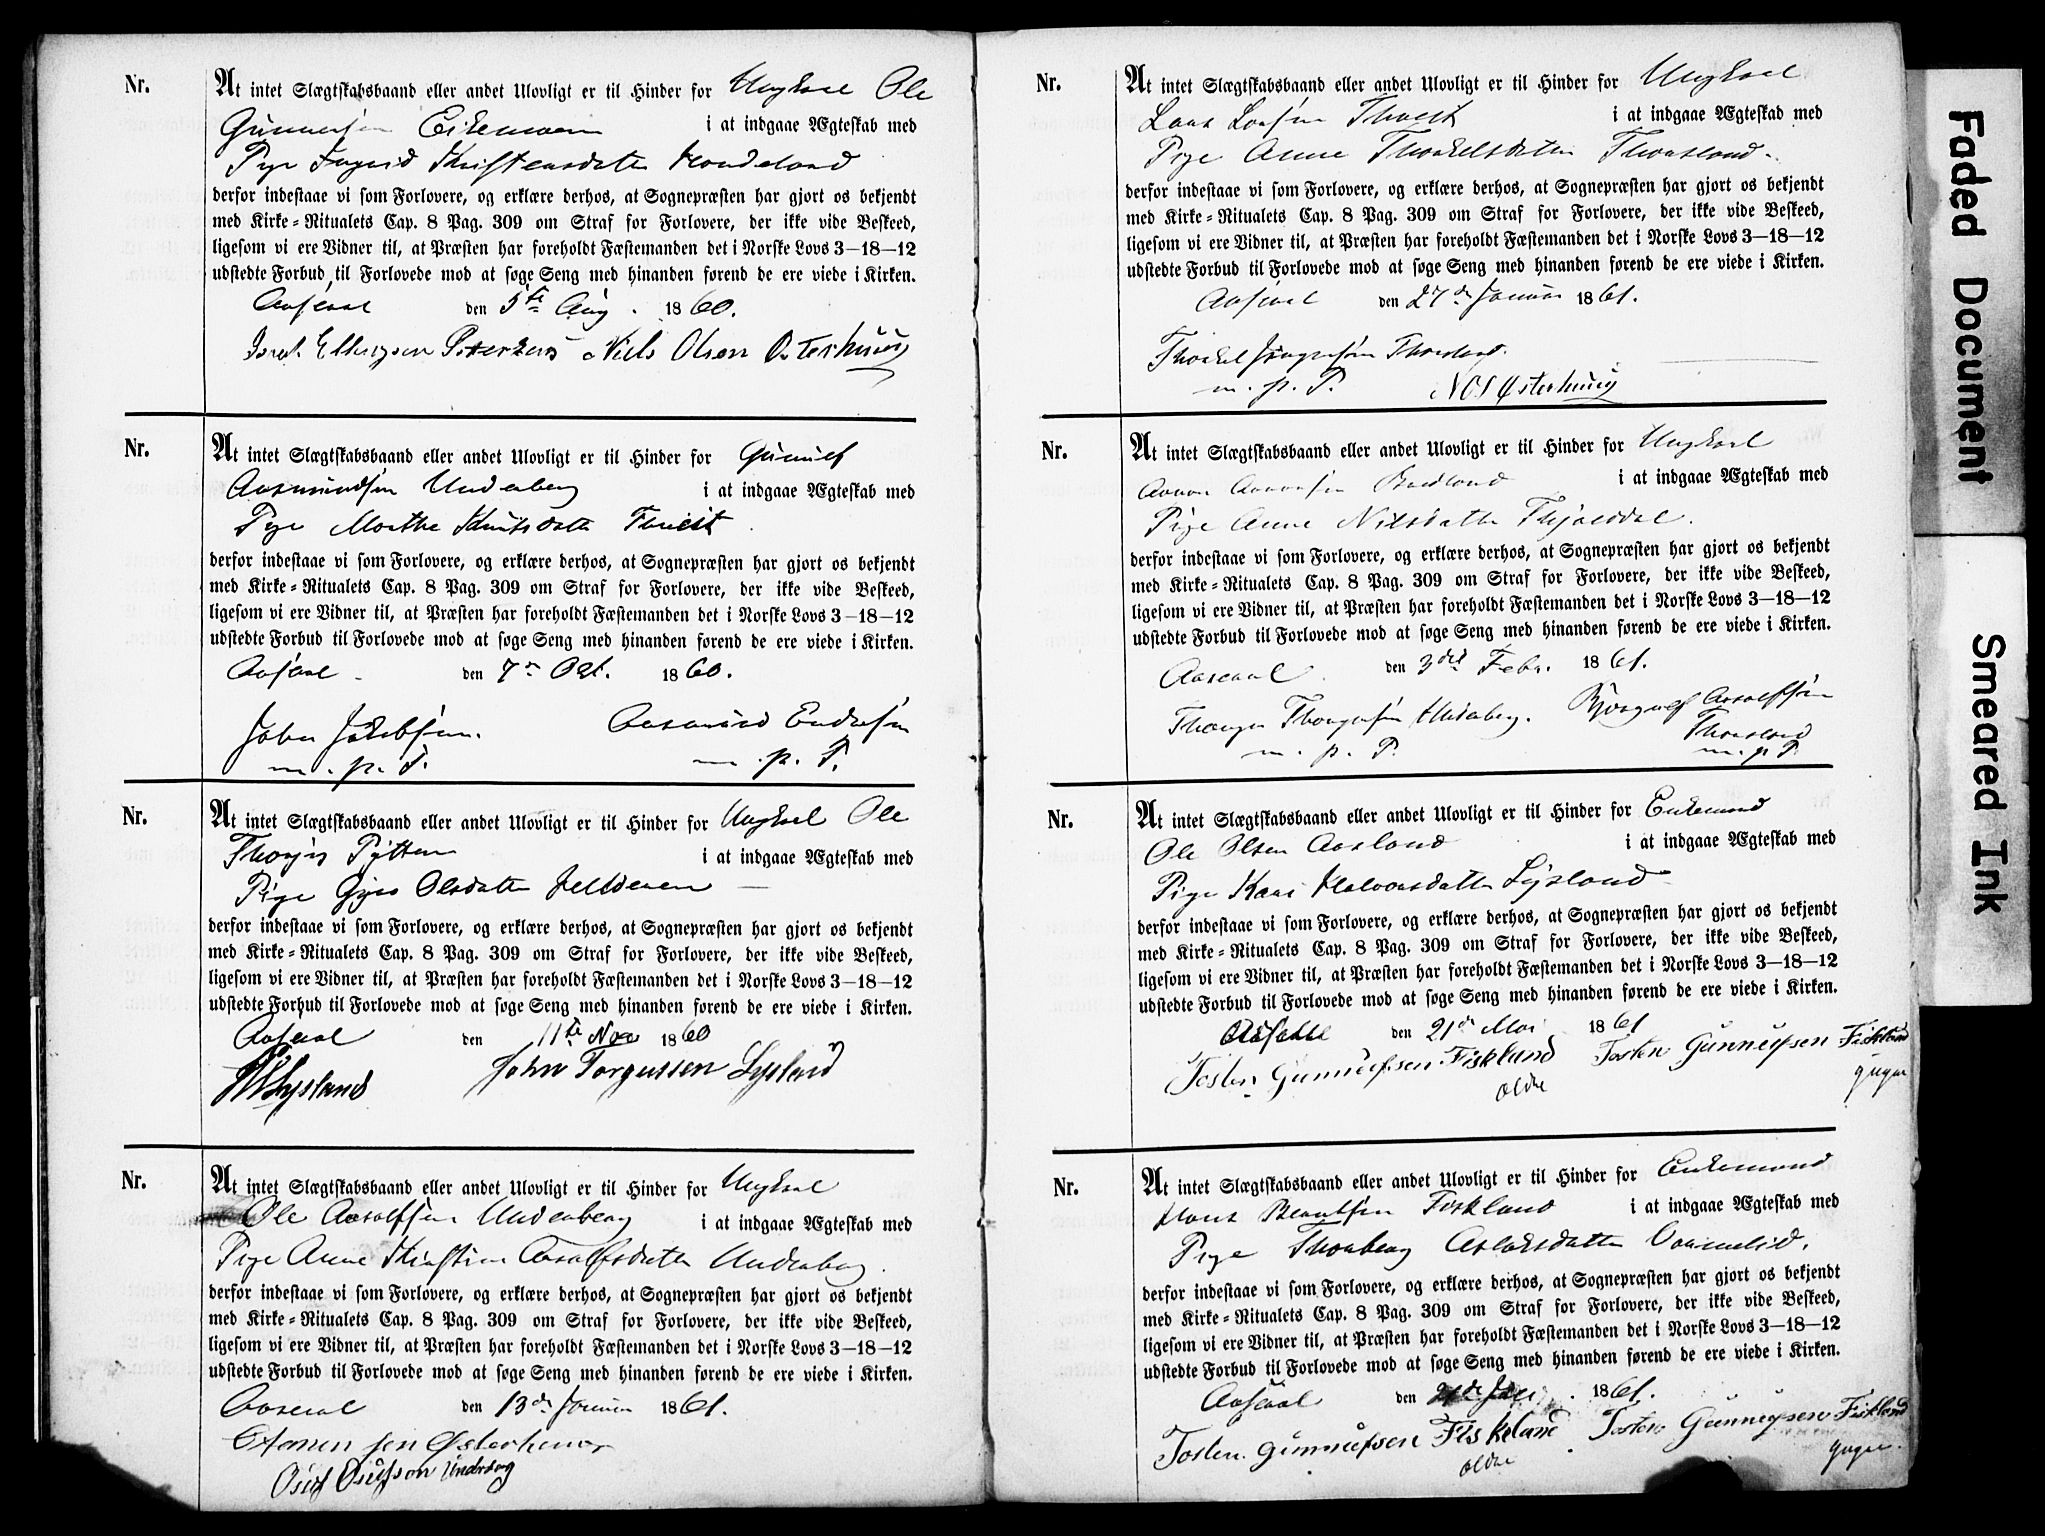 Nr.
At intet Slægtskabsbaand eller andet Ulovligt er til Hinder for Ungkarl Ole
Gunnersen Eikemoen i at indgaae Ægteskab med
Pige Ingrid Kristensdatter Hondeland
derfor indestaae vi som Forlovere, og erklære derhos, at Sognepræsten har gjort os bekjendt
med Kirke-Ritualets Cap. 8 Pag. 309 om Straf for Forlovere, der ikke vide Beskeed,
ligesom vi ere Vidner til, at Præsten har foreholdt Fæstemanden det i Norske Lovs 3—18—12
udstedte Forbud til Forlovede mod at søge Seng med hinanden førend de ere viede i Kirken.
Aaseral den 5te Aug. 1860.
Niels Olsen Østerhuus
Nr.
At intet Slægtskabsbaand eller andet Ulovligt er til Hinder for Gunuf
Aasmundsen Underberg i at indgaae Ægteskab med
Pige Marthe Knutsdatter Thveit
derfor indestaae vi som Forlovere, og erklære derhos, at Sognepræsten har gjort os bekjendt
med Kirke-Ritualets Cap. 8 Pag. 309 om Straf for Forlovere, der ikke vide Beskeed,
ligesom vi ere Vidner til, at Præsten har foreholdt Fæstemanden det i Norske Lovs 3—18—12
udstedte Forbud til Forlovede mod at søge Seng med hinanden førend de ere viede i Kirken.
Aaseral den 7de Okt. 1860.
John Jakobsen. Aasmund Endresen
m. p. P. m. p. P.
Nr.
At intet Slægtskabsbaand eller andet Ulovligt er til Hinder for Ungkarl Ole
Thorjus Pytten i at indgaae Ægteskab med
Pige Gyro Olsdatter
derfor indestaae vi som Forlovere, og erklære derhos, at Sognepræsten har gjort os bekjendt
med Kirke-Ritualets Cap. 8 Pag. 309 om Straf for Forlovere, der ikke vide Beskeed,
ligesom vi ere Vidner til, at Præsten har foreholdt Fæstemanden det i Norske Lovs 3—18—12
udstedte Forbud til Forlovede mod at søge Seng med hinanden førend de ere viede i Kirken.
Aaseral den 11te Nov 1860
Lysland John Torgussen Lysland
Nr.
At intet Slægtskabsbaand eller andet Ulovligt er til Hinder for Ungkarl
Ole Aasolfsen Underberg i at indgaae Ægteskab med
Pige Anne Kristine Aasolfsdatter Underberg
derfor indestaae vi som Forlovere, og erklære derhos, at Sognepræsten har gjort os bekjendt
med Kirke-Ritualets Cap. 8 Pag. 309 om Straf for Forlovere, der ikke vide Beskeed,
ligesom vi ere Vidner til, at Præsten har foreholdt Fæstemanden det i Norske Lovs 3—18—12
udstedte Forbud til Forlovede mod at søge Seng med hinanden førend de ere viede i Kirken.
Aaseral den 13de Januar 1861.
Østerhuus
Osuf Osufson
Nr.
At intet Slægtskabsbaand eller andet Ulovligt er til Hinder for Ungkarl
Lars Larsen Thveit i at indgaae Ægteskab med
Pige Anne Thorkelsdatter Thorsland.
derfor indestaae vi som Forlovere, og erklære derhos, at Sognepræsten har gjort os bekjendt
med Kirke-Ritualets Cap. 8 Pag. 309 om Straf for Forlovere, der ikke vide Beskeed,
ligesom vi ere Vidner til, at Præsten har foreholdt Fæstemanden det i Norske Lovs 3—18—12
udstedte Forbud til Forlovede mod at søge Seng med hinanden førend de ere viede i Kirken.
Aaseral den 27de Januar 1861.
Thorkel Jørgensen Thorsland.
m. p. P. NOS Østerhuus
Nr.
At intet Slægtskabsbaand eller andet Ulovligt er til Hinder for Ungkarl
Aanon Aanonsen i at indgaae Ægteskab med
Pige Anne Nilsdatter
derfor indestaae vi som Forlovere, og erklære derhos, at Sognepræsten har gjort os bekjendt
med Kirke-Ritualets Cap. 8 Pag. 309 om Straf for Forlovere, der ikke vide Beskeed,
ligesom vi ere Vidner til, at Præsten har foreholdt Fæstemanden det i Norske Lovs 3—18—12
udstedte Forbud til Forlovede mod at søge Seng med hinanden førend de ere viede i Kirken.
Aaseral den 3die Febr. 1861.
Underberg. Bjorgulf Aasolfsen
Thorsland
m. p. P. m. p. P.
Nr.
At intet Slægtskabsbaand eller andet Ulovligt er til Hinder for Enkemand
Ole Olsen Aasland i at indgaae Ægteskab med
Pige Kari Halvorsdatter Lysland
derfor indestaae vi som Forlovere, og erklære derhos, at Sognepræsten har gjort os bekjendt
med Kirke-Ritualets Cap. 8 Pag. 309 om Straf for Forlovere, der ikke vide Beskeed,
ligesom vi ere Vidner til, at Præsten har foreholdt Fæstemanden det i Norske Lovs 3—18—12
udstedte Forbud til Forlovede mod at søge Seng med hinanden førend de ere viede i Kirken.
den 21de Mai 1861
Tosten Gunnufsen Fiskland Tosten Gunnufsen Fiskland
ældre yngre
Nr.
At intet Slægtskabsbaand eller andet Ulovligt er til Hinder for Enkemand
Berntsen Fiskland i at indgaae Ægteskab med
Pige Thorberg Aslaksdatter
derfor indestaae vi som Forlovere, og erklære derhos, at Sognepræsten har gjort os bekjendt
med Kirke-Ritualets Cap. 8 Pag. 309 om Straf for Forlovere, der ikke vide Beskeed,
ligesom vi ere Vidner til, at Præsten har foreholdt Fæstemanden det i Norske Lovs 3—18—12
udstedte Forbud til Forlovede mod at søge Seng med hinanden førend de ere viede i Kirken.
Aaseral den 1861.
Tosten Gunnufsen Fiskland Tosten Gunnufsen Fiskland
ældre yngre.
Faded Document
Smeared Ink